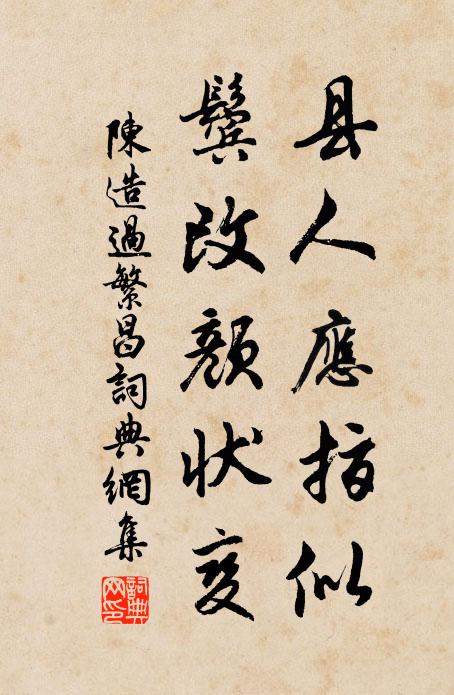 县人應指似
鬓改颜狀变
陳造過繁昌詞典網集
詞典網印